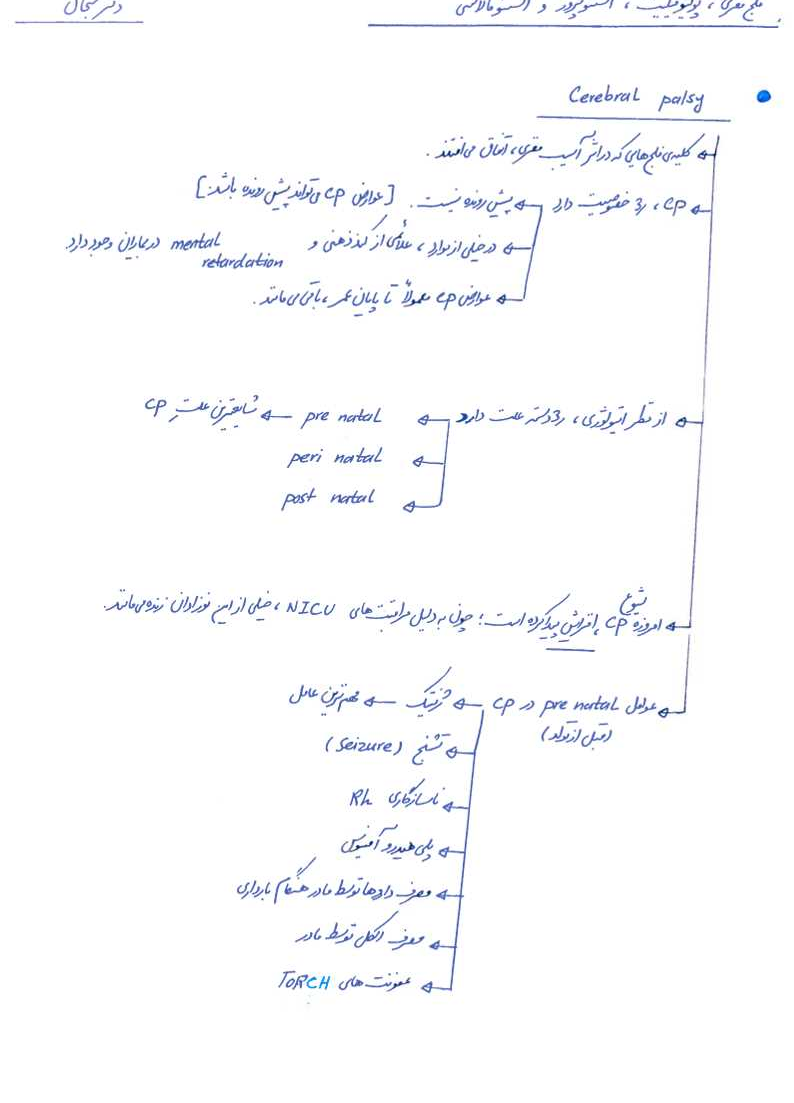 فلج مغزی، پولیومیلیت، استئوپروز و استئومالاسی
دکتر
Cerebral palsy
کلیه‌ی فلج‌هایی که در اثر آسیب مغزی، اتفاق می‌افتند.
CP، 3 خصوصیت دارد
پیش رونده نیست. [عوارض CP می‌تواند پیش رونده باشد.]
در خیلی از موارد، علائمی از کندذهنی و mental retardation در بیماران وجود دارد.
عوارض CP معمولاً تا پایان عمر، باقی می‌مانند.
از نظر اتیولوژی، 3 دسته علت دارد
pre natal ← شایعترین علتِ CP
peri natal
post natal
امروزه شیوع CP، افزایش پیدا کرده است؛ چون به دلیل مراقبت‌های NICU، خیلی از این نوزادان زنده می‌مانند.
عوامل pre natal در CP ← ژنتیک ← مهم‌ترین عامل
(قبل از تولد)
تشنج (seizure)
ناسازگاری Rh
پلی هیدرو آمنیوس
مصرف داروها توسط مادر هنگام بارداری
مصرف الکل توسط مادر
عفونت های TORCH